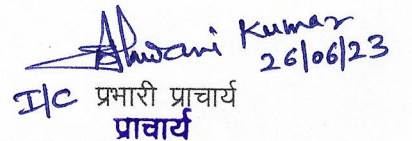 Ashwani Kumar
26/06/23
I/C प्रभारी प्राचार्य
प्राचार्य